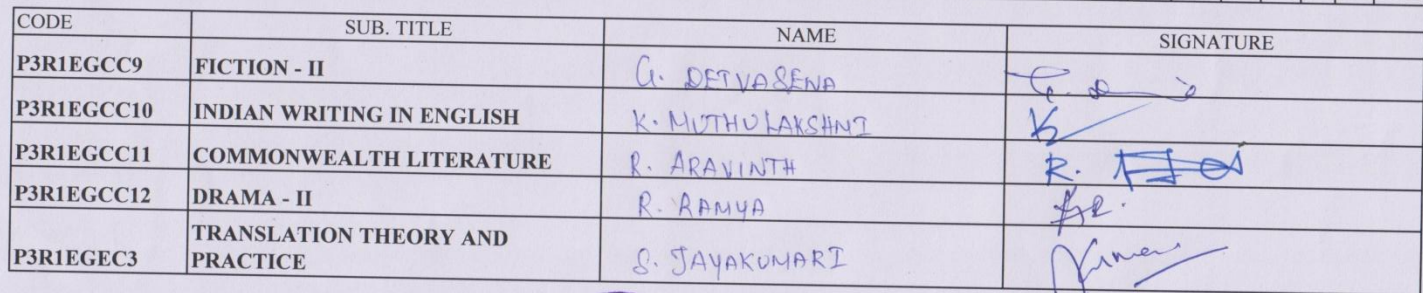 CODE SUB. TITLE NAME SIGNATURE
P3R1EGCC9 FICTION - II G. DEIVASENA
P3R1EGCC10 INDIAN WRITING IN ENGLISH K. MUTHULAKSHMI
P3R1EGCC11 COMMONWEALTH LITERATURE R. ARAVINTH R.
P3R1EGCC12 DRAMA - II R. RAMYA
TRANSLATION THEORY AND
P3R1EGEC3 PRACTICE S. JAYAKUMARI